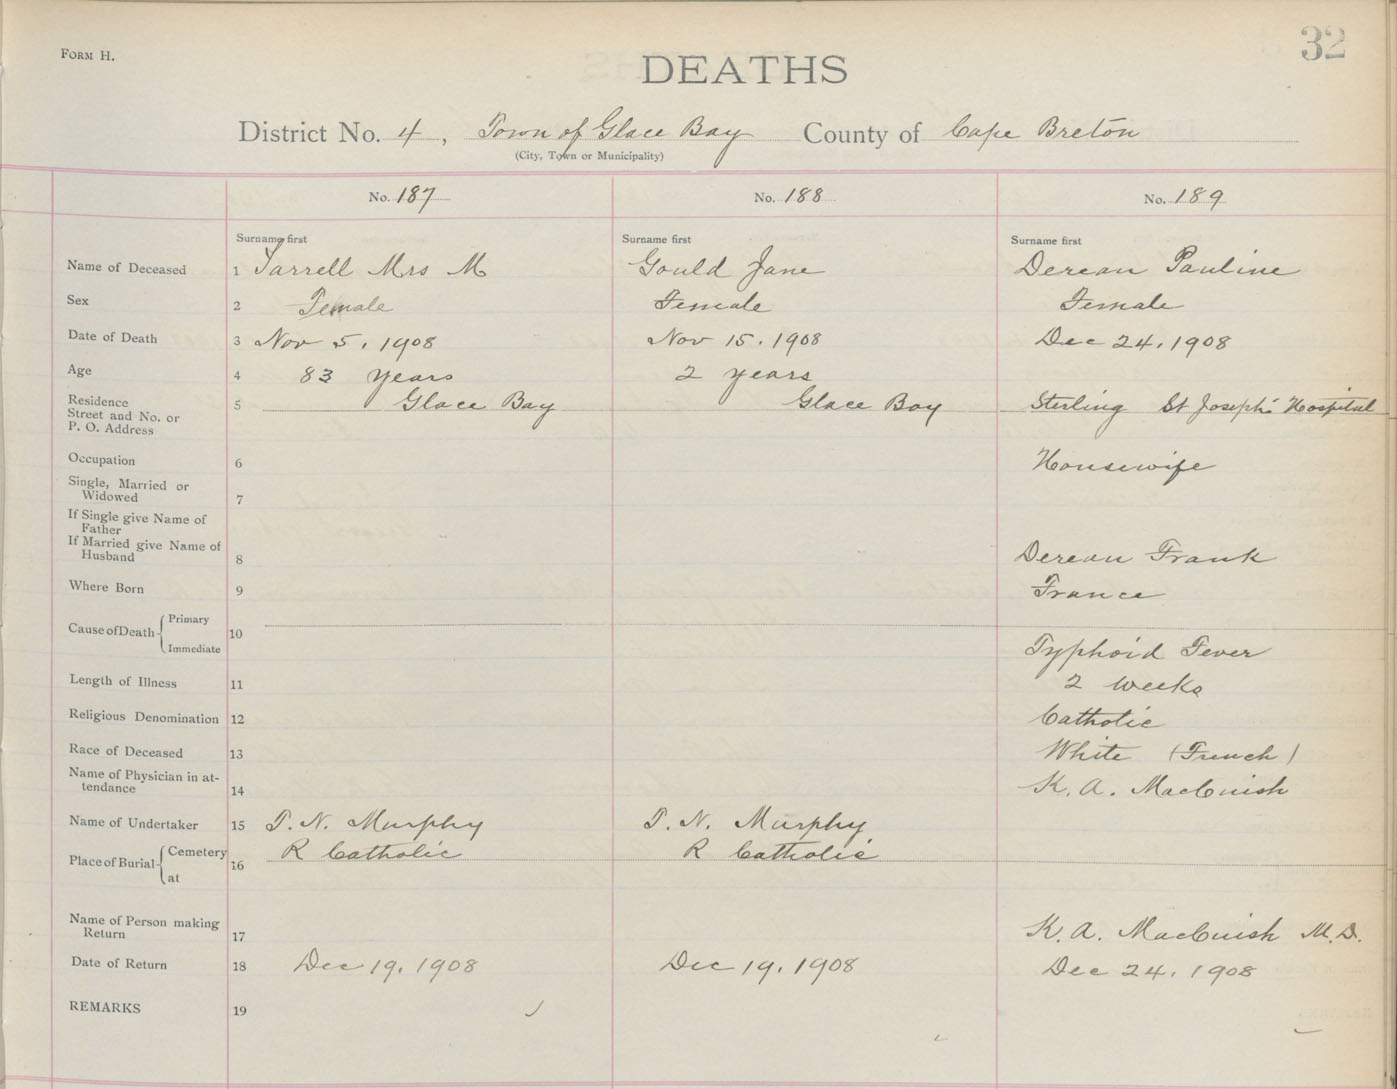 FORM H.
32
DEATHS
District No. 4, Town of Glace Bay County of Cape Breton
(City, Town or Municipality)
No. 187 No. 188 No. 189
Surname first Surname first Surname first
Name of Deceased 1 Farrell Mrs M Gould Jane Derean Pauline
Sex 2 Female Female Female
Date of Death 3 Nov 5, 1908 Nov 15, 1908 Dec 24, 1908
Age 4 83 years 2 years
Residence 5 Glace Bay Glace Bay Sterling St Joseph's Hospital
Street and No. or
P. O. Address
Occupation 6 Housewife
Single, Married or
Widowed 7
If Single give Name of
Father
If Married give Name of
Husband 8 Derean Frank
Where Born 9 France
Cause of Death Primary
10
Immediate Typhoid Fever
Length of Illness 11 2 weeks
Religious Denomination 12 Catholic
Race of Deceased 13 White (French)
Name of Physician in at-
tendance 14 K. A. MacCuish
Name of Undertaker 15 T. N. Murphy T. N. Murphy
Place of Burial Cemetery 16 R Catholic R Catholic
at
Name of Person making
Return 17 K. A. MacCuish M.D.
Date of Return 18 Dec 19, 1908 Dec 19, 1908 Dec 24, 1908
REMARKS 19